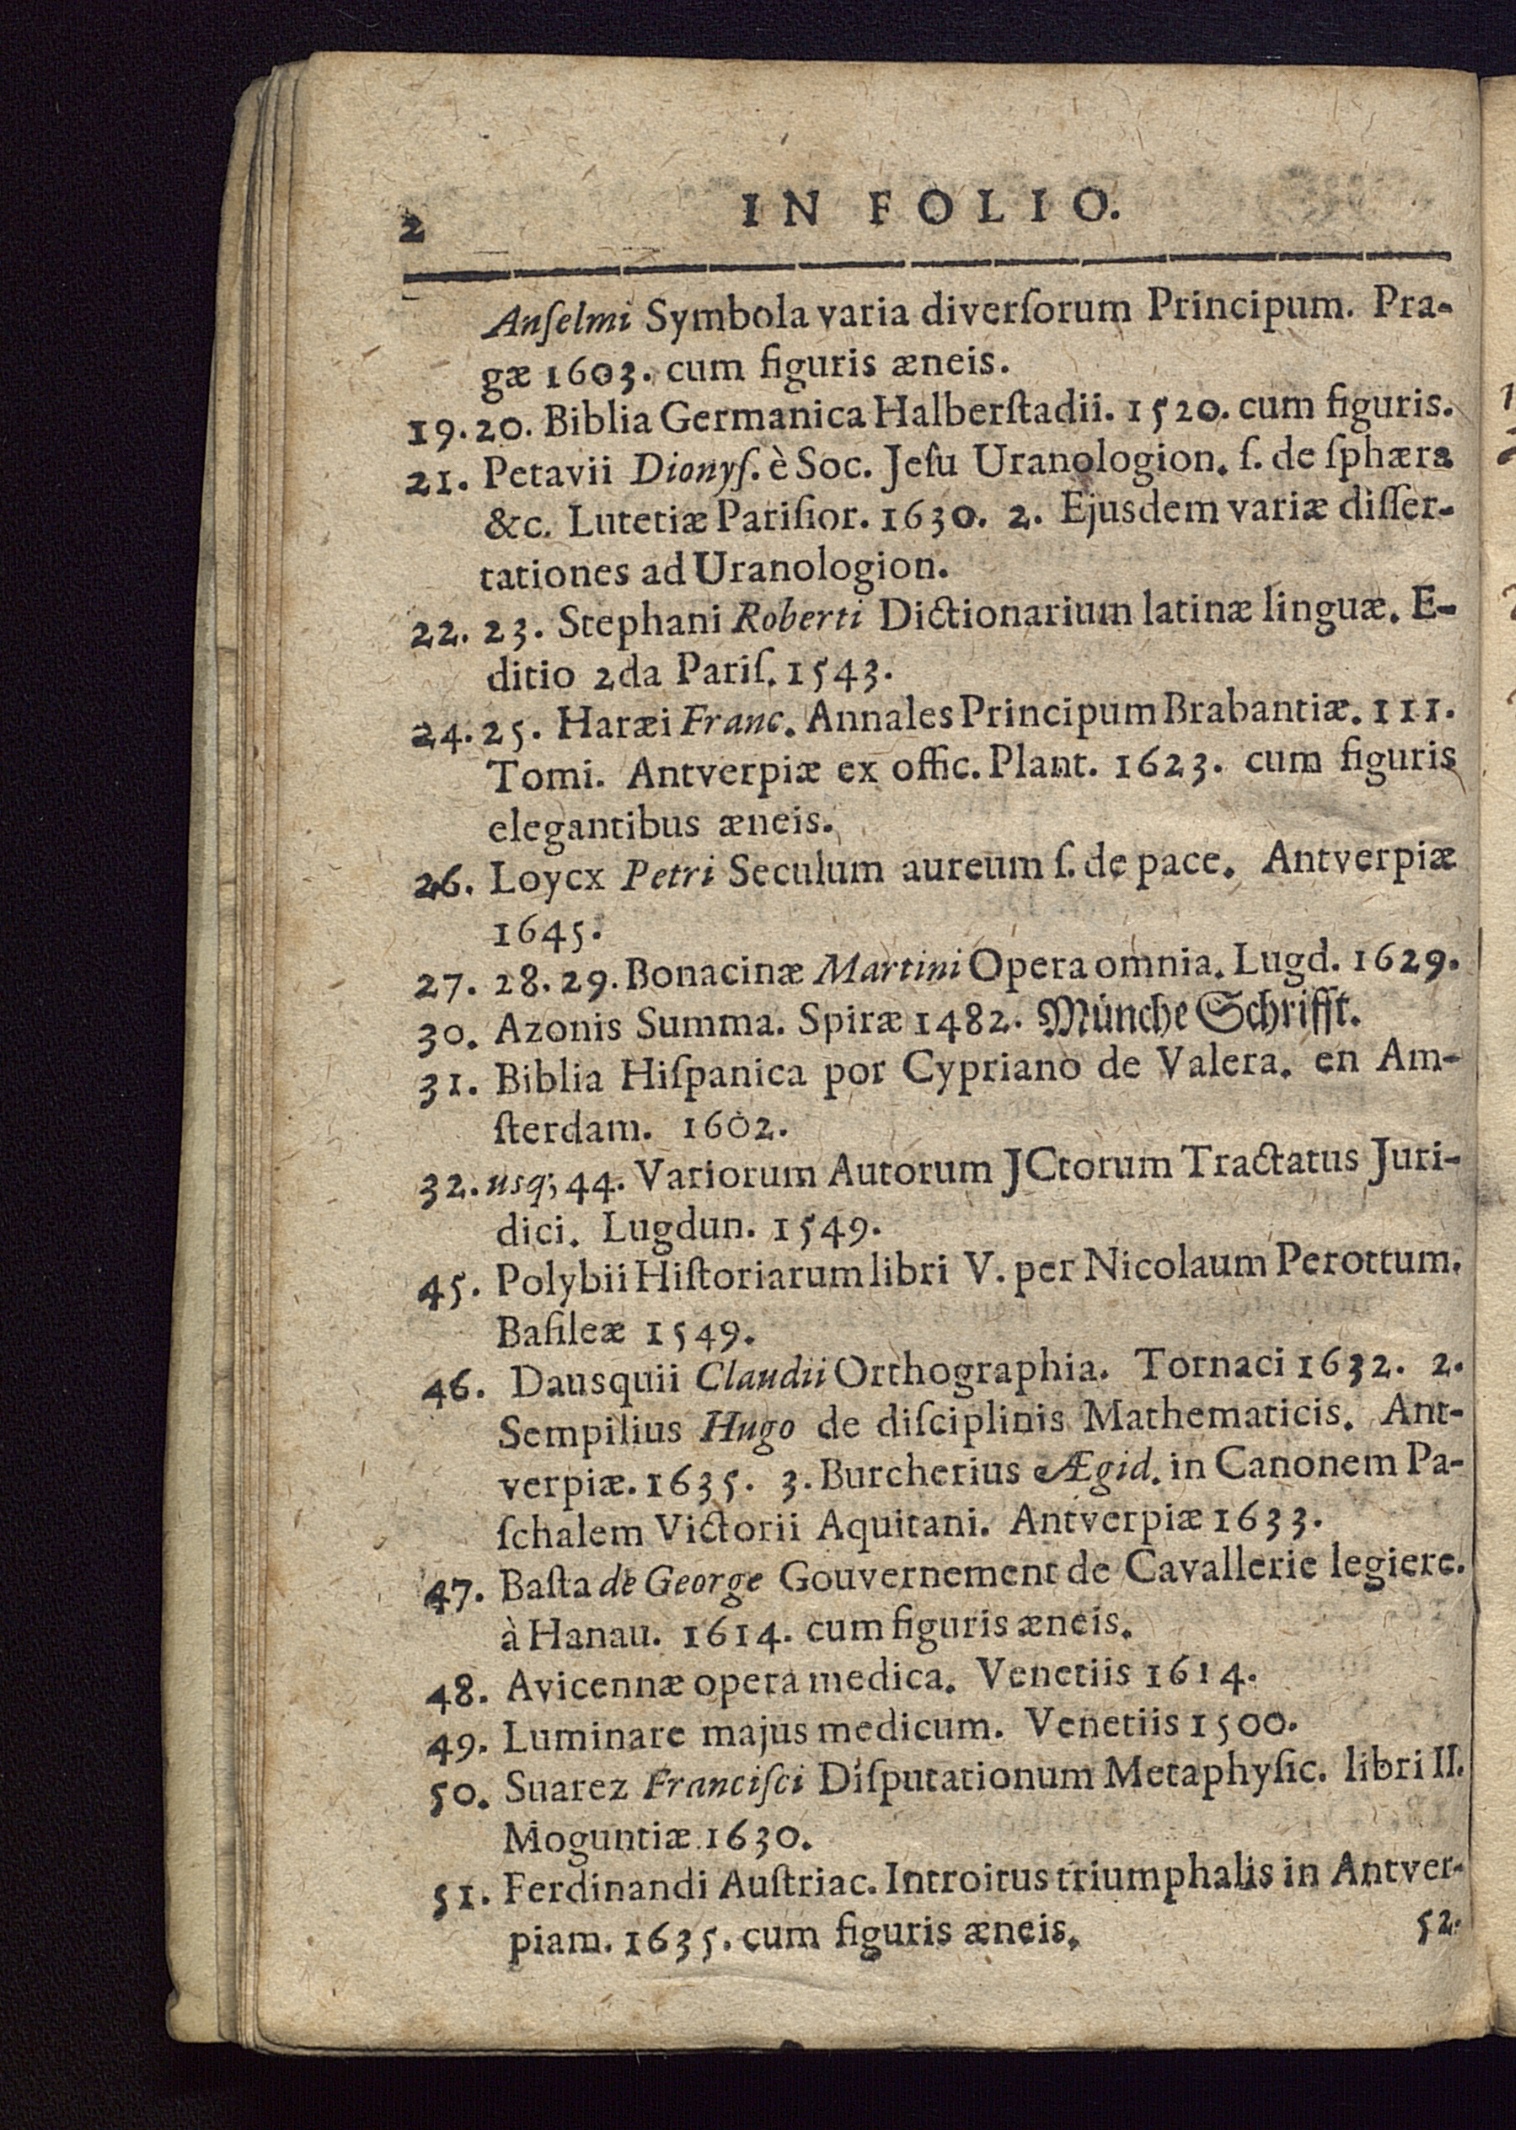 2 IN FOLIO.
Anſelmi Symbola varia diverſorum Principum. Pra-
gæ 1603. cum figuris æneis.
19. 20. Biblia Germanica Halberſtadii. 1520. cum figuris.
21. Petavii Dionyſ. è Soc. Jeſu Uranologion. ſ. de ſphæra
&c. Lutetiæ Pariſior. 1630. 2. Ejusdem variæ diſſer-
tationes ad Uranologion.
22. 23. Stephani Roberti Dictionarium latinæ linguæ. E-
ditio 2da Pariſ. 1543.
24. 25. Haræi Franc. Annales Principum Brabantiæ. III.
Tomi. Antverpiæ ex offic. Plant. 1623. cum figuris
elegantibus æneis.
26. Loycx Petri Seculum aureum ſ. de pace. Antverpiæ
1645.
27. 28. 29. Bonacinæ Martini Opera omnia. Lugd. 1629.
30. Azonis Summa. Spiræ 1482. Münche Schrifft.
31. Biblia Hiſpanica por Cypriano de Valera. en Am-
ſterdam. 1602.
32. usq; 44. Variorum Autorum JCtorum Tractatus Juri-
dici. Lugdun. 1549.
45. Polybii Hiſtoriarum libri V. per Nicolaum Perottum.
Baſileæ 1549.
46. Dausquii Claudii Orthographia. Tornaci 1632. 2.
Sempilius Hugo de diſciplinis Mathematicis. Ant-
verpiæ. 1635. 3. Burcherius Ægid. in Canonem Pa-
ſchalem Victorii Aquitani. Antverpiæ 1633.
47. Baſta de George Gouvernement de Cavallerie legiere.
à Hanau. 1614. cum figuris æneis.
48. Avicennæ opera medica. Venetiis 1614.
49. Luminare majus medicum. Venetiis 1500.
50. Suarez Franciſci Diſputationum Metaphyſic. libri II.
Moguntiæ 1630.
51. Ferdinandi Auſtriac. Introitus triumphalis in Antver-
piam. 1635. cum figuris æneis.
52.